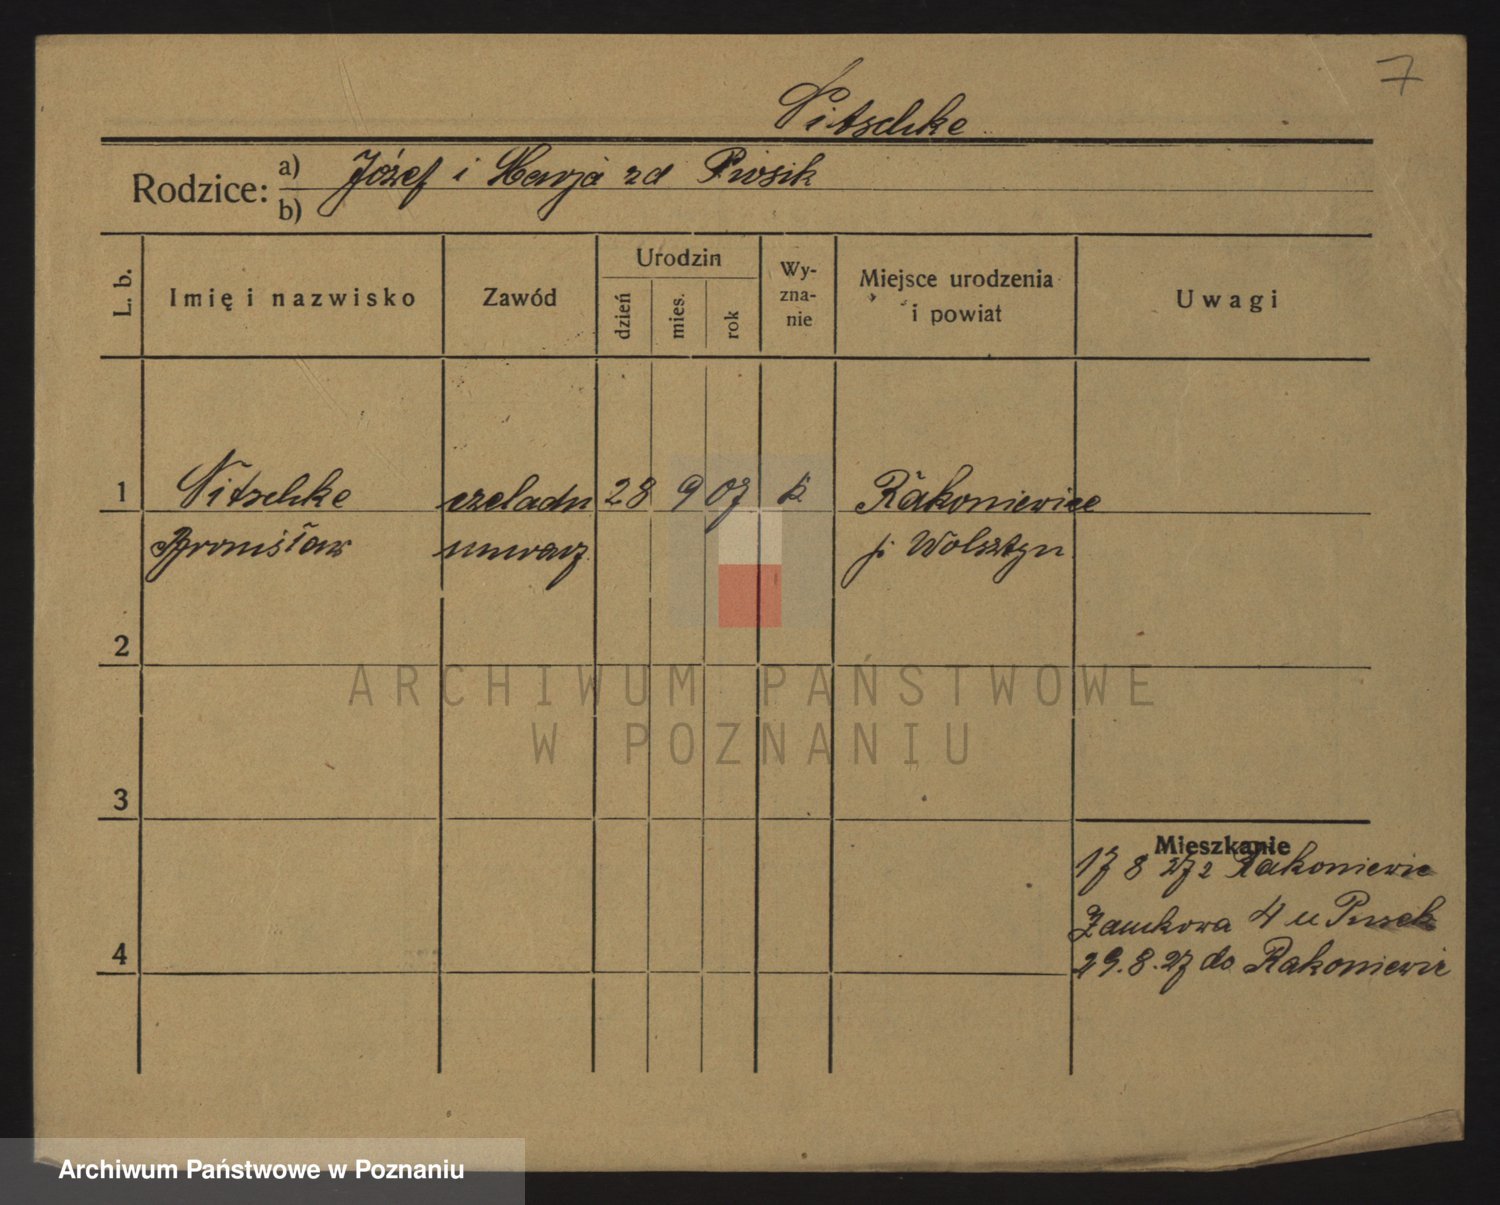 7
Nitschke
Rodzice: a) Józef i Marja zd Piosik
b)
L. b. Imię i nazwisko Zawód Urodzin dzień mies. rok Wyznanie Miejsce urodzenia i powiat Uwagi
1 Nitschke czeladn 28 9 07 k Rakoniewice
Bronisław murarz p. Wolsztyn
2
ARCHIWUM PAŃSTWOWE
W POZNANIU
3
Mieszkanie
17 8 27 z Rakoniewic
Zamkowa 4 u
4 29.8.27 do Rakoniewic
Archiwum Państwowe w Poznaniu